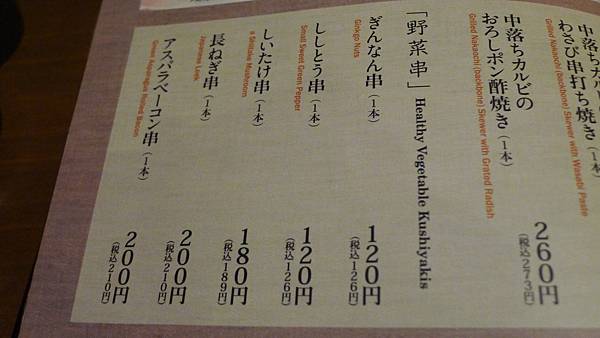 中落ちカルビ
わさび串打ち焼き（1本）
Grilled Nakaochi (backbone) Skewer with Wasabi Paste
中落ちカルビの
おろしポン酢焼き（1本）
260円
（税込273円）
Grilled Nakaochi (backbone) Skewer with Grated Radish
「野菜串」Healthy Vegetable Kushiyakis
ぎんなん串（1本）
120円
（税込126円）
Ginkgo Nuts
ししとう串（1本）
120円
（税込126円）
Small Sweet Green Pepper
しいたけ串（1本）
180円
（税込189円）
a Shiitake Mushroom
長ねぎ串（1本）
200円
（税込210円）
Japanese Leek
アスパラベーコン串（1本）
200円
（税込210円）
Green Asparagus Rolled Bacon